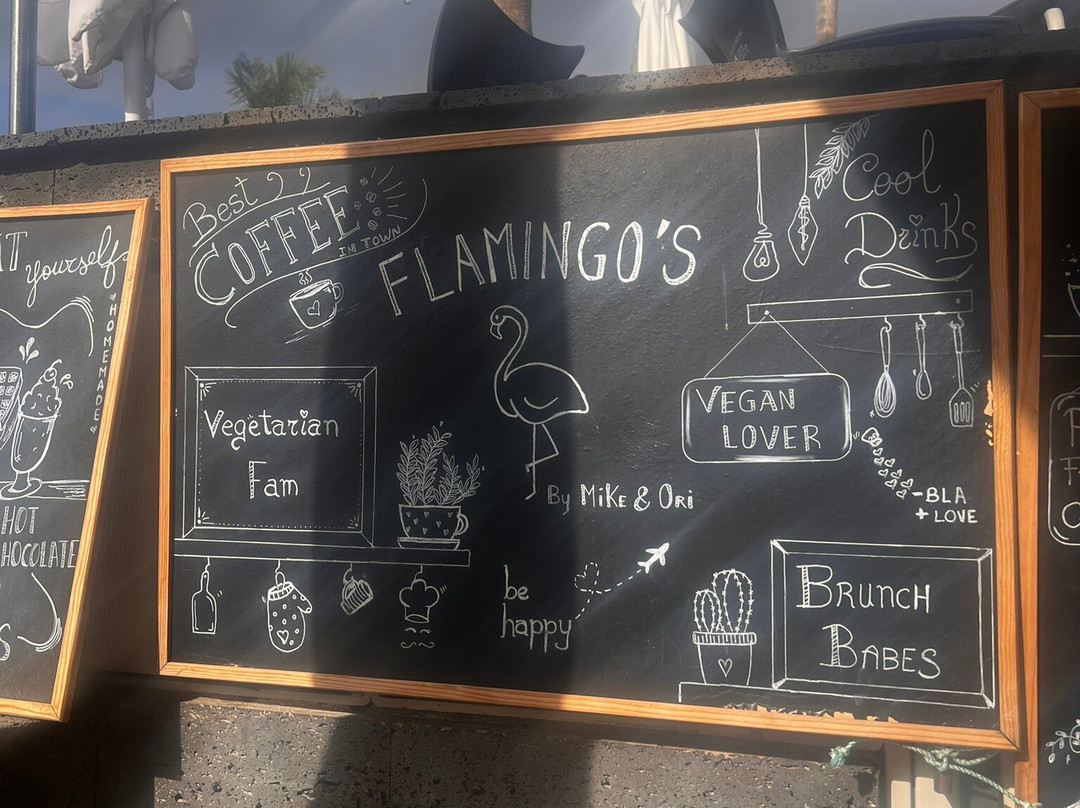 yourself
HOMEMADE
HOT
Best
COFFEE
IN TOWN
FLAMINGO'S
Cool
Drinks
Vegetarian
Fam
VEGAN
LOVER
By MiKE & Ori
-BLA
+ LOVE
be
happy
BRUNCH
BABES